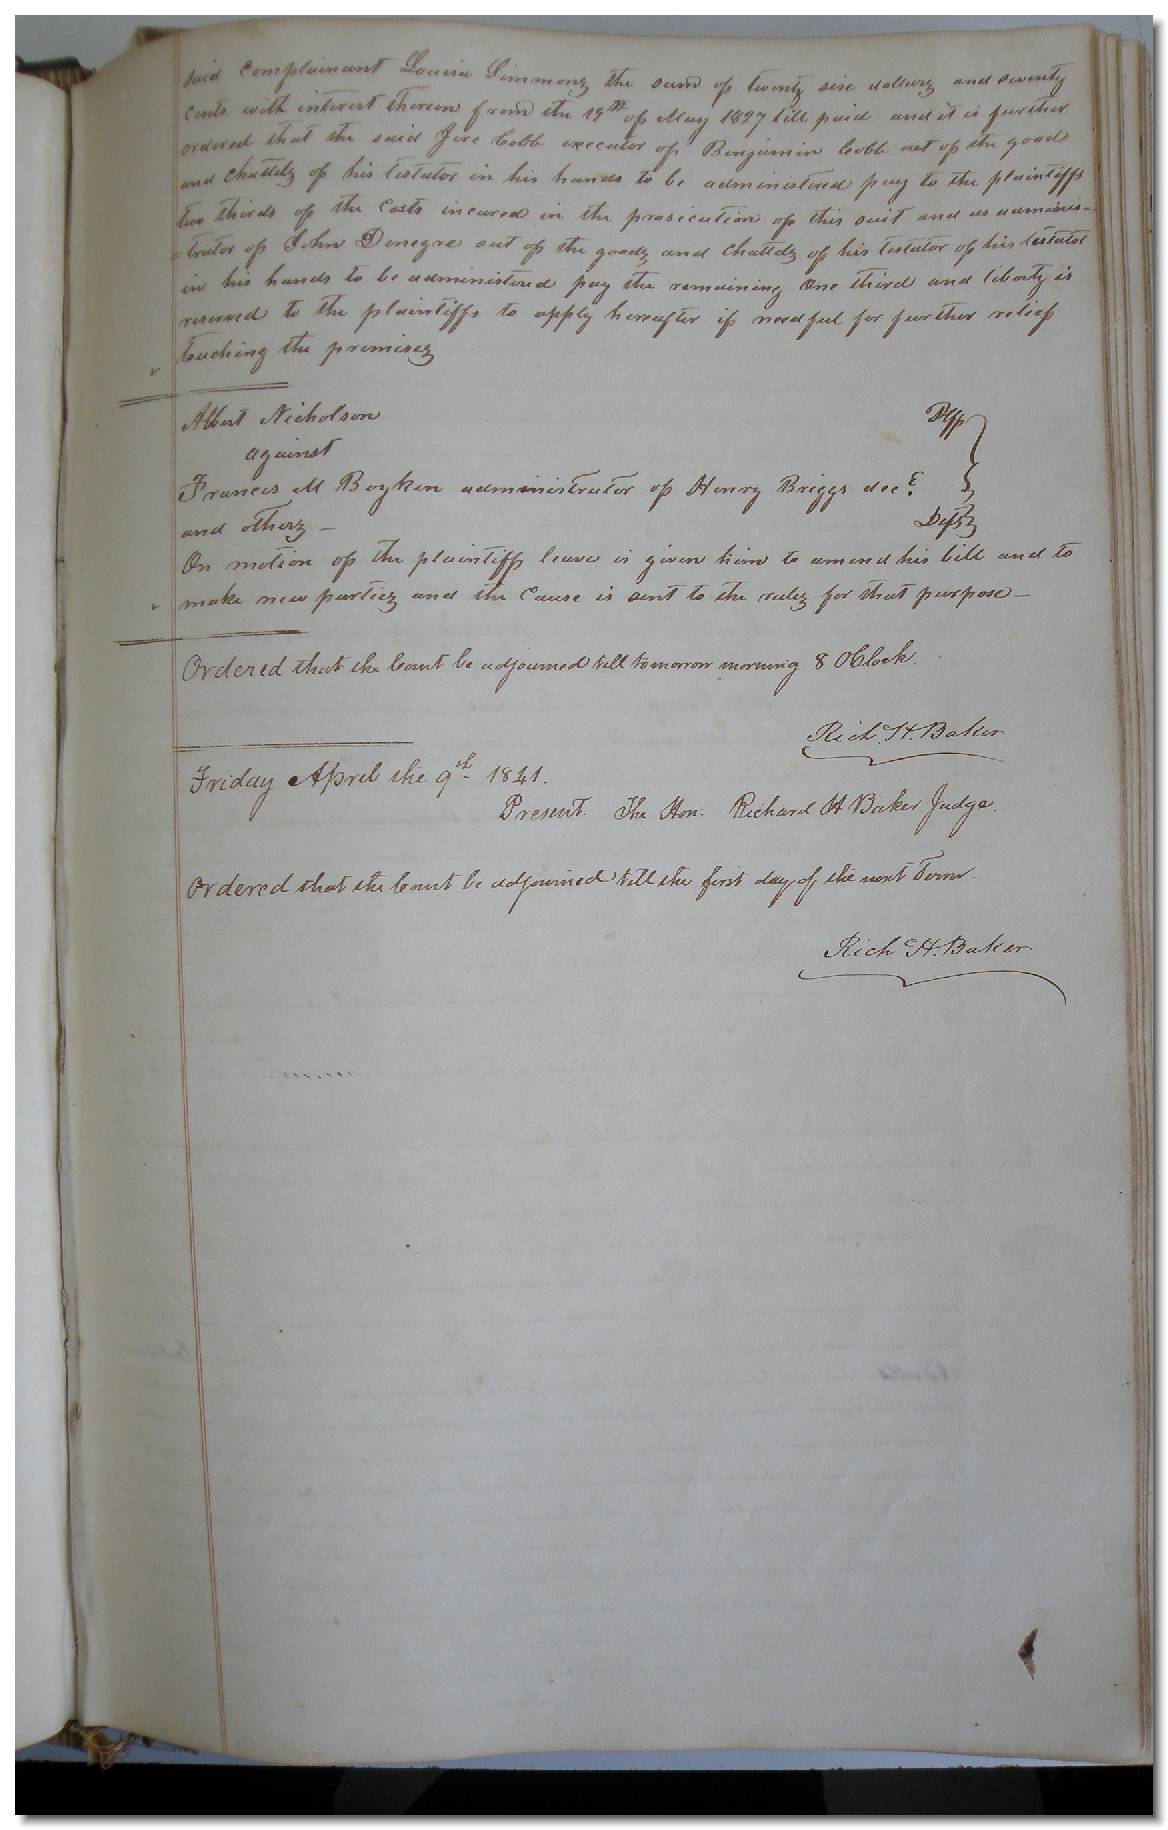 said complainant Louisa Simmons the sum of twenty six dollars and seventy
cents with interest thereon from the 19th of May 1827 till paid and it is further
ordered that the said Jere Cobb executor of Benjamin Cobb out of the goods
and chattels of his testator in his hands to be administered pay to the plaintiffs
two thirds of the costs incured in the prosicution of this suit and as adminis-
-trator of John Denegre out of the goods and chattels of his testator of his testator
in his hands to be administered pay the remaining one third and liberty is
reserved to the plaintiffs to apply hereafter if needful for further relief
touching the premises
Albert Nicholson Plff
against
Francis M Boykin administrator of Henry Briggs decd
and others – Defts
On motion of the plaintiff leave is given him to amend his bill and to
make new parties and the cause is sent to the rules for that purpose –
Ordered that the Court be adjourned till tomorrow morning 8 OClock.
Rich. H. Baker
Friday April the 9th 1841.
Present. The Hon. Richard H Baker Judge.
Ordered that the Court be adjourned till the first day of the next Term.
Rich H. Baker